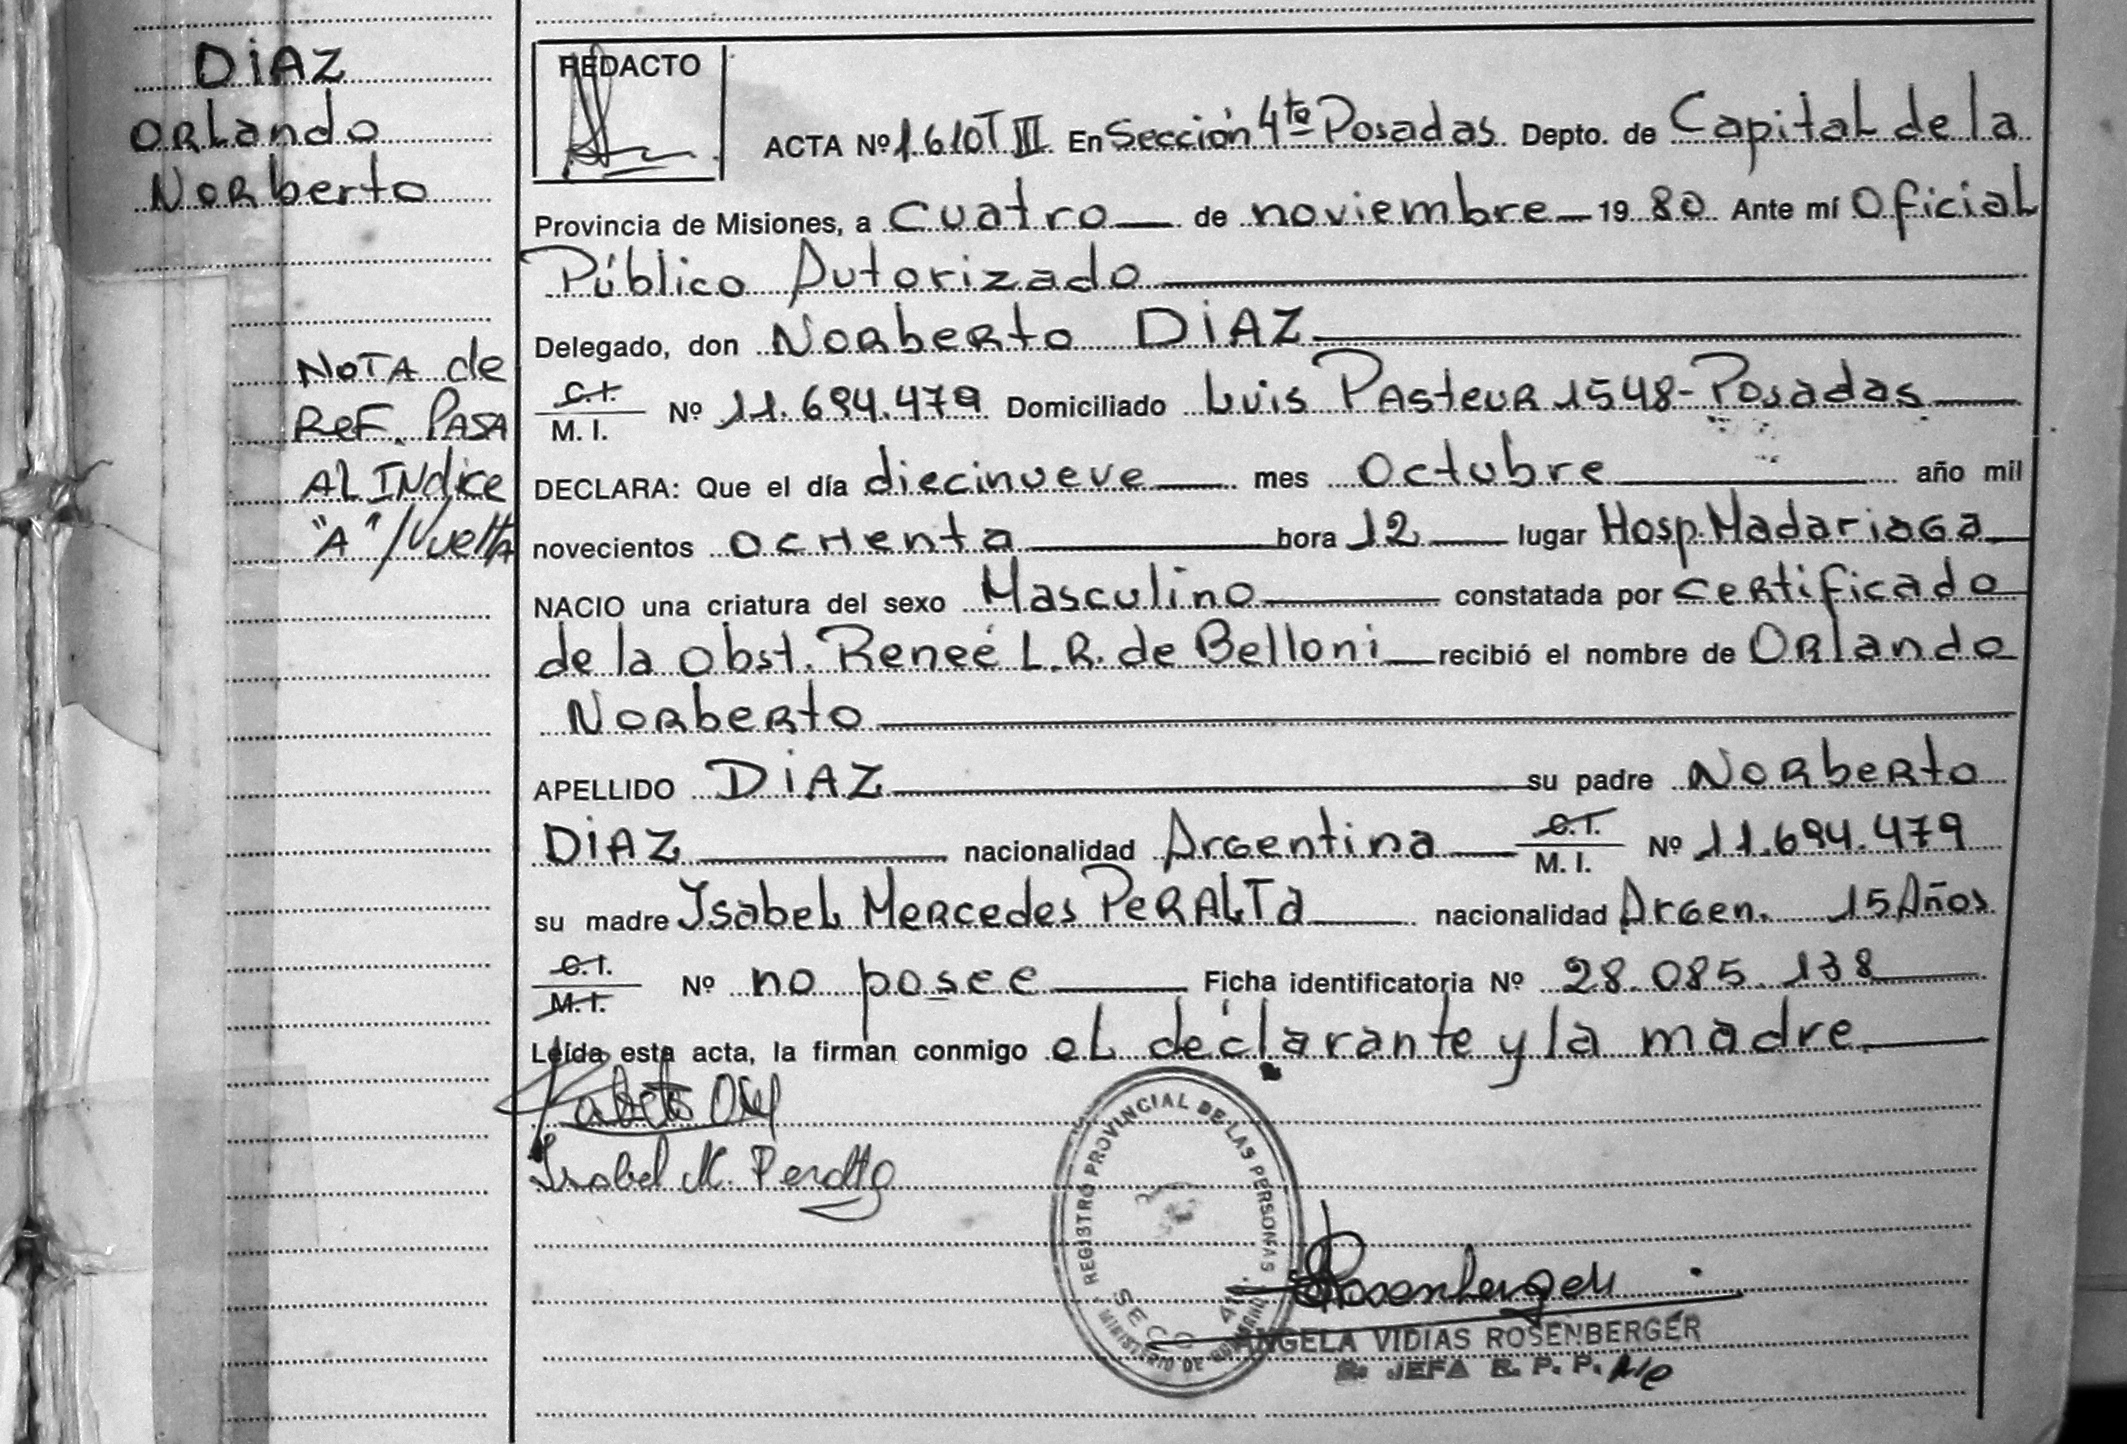 DIAZ
Orlando
Norberto
NOTA de
Ref. PASA
AL INdice
"A"/Vuelta
REDACTO
ACTA Nº 1610 T III En Sección 4ta Posadas Depto. de Capital de la
Provincia de Misiones, a cuatro de noviembre 19 80 Ante mí Oficial
Público Autorizado
Delegado, don Norberto DIAZ
C.I.
M. I. Nº 11.694.479 Domiciliado Luis Pasteur 1548-Posadas
DECLARA: Que el día diecinueve mes Octubre año mil
novecientos ochenta hora 12 lugar Hosp. Madariaga
NACIO una criatura del sexo Masculino constatada por certificado
de la Obst. Reneé L.R. de Belloni recibió el nombre de Orlando
Norberto
APELLIDO DIAZ su padre Norberto
DIAZ nacionalidad Argentina C.I.
M. I. Nº 11.694.479
su madre Isabel Mercedes PERALTA nacionalidad Argen. 15 Años
C.I.
M.I. Nº no posee Ficha identificatoria Nº 28.085.138
Leída esta acta, la firman conmigo el declarante y la madre
Isabel M. Peralta
REGISTRO PROVINCIAL DE LAS PERSONAS
SECC 4ta.
MINISTERIO DE GOBIERNO
Rosenberger
ANGELA VIDIAS ROSENBERGER
JEFA R. P. P.